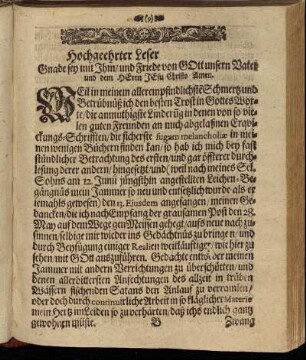 (9)
Hochgeehrter Leser
Gnade sey mit Ihm/ und Friede von GOtt unsern Vater
und dem HErrn JEsu Christo Amen.
WEil in meinem allerempfindlichsteSchmertz und
Betrübnüß ich den besten Trost in Gottes Wor-
te/ die anmuthigste Linderüg in denen von so vie-
len guten Freunden an mich abgelaßnen Erqvi-
ckungs-Schrifften/ die sicherste fugam melancholiæ in mei-
nen wenigen Büchern finden kan/ so hab ich mich bey fast
stündlicher Betrachtung des ersten/ und gar öffterer durch-
lesung derer andern/ hingesetzt/ und/ weil nach meines Sel.
Sohns am 12. Junii jüngsthin angestellten Leichen-Be-
gängnüs mein Jammer so neu und entsetzlich wurde als er
iemahls gewesen/ den 13. Ejusdem angefangen/ meine Ge-
dancken/ die ich nach Empfang der grausamen Post den 28.
May auf dem Wege gen Meissen gehegt/ aufs neue nach zu
sinnen/ selbige mir wieder ins Gedächtnüs zu bringen/ und
durch Beyfügung einiger Realien weitläuftiger/ wie hier zu
sehen mit GOtt auszuführen. Gedachte entw. der meinen
Jammer mit andern Verrichtungen zu überschütten/ und
denen allerbittersten Anfechtungen des allzeit in trüben
Wässern fischenden Satans den Anlauf zu verrainlen/
oder doch durch continuirliche Arbeit in so kläglicher Materie
mein Hertz im Leiden so zu verhärten/ daß ichs endlich gantz
gewohnen müste. B Zwang